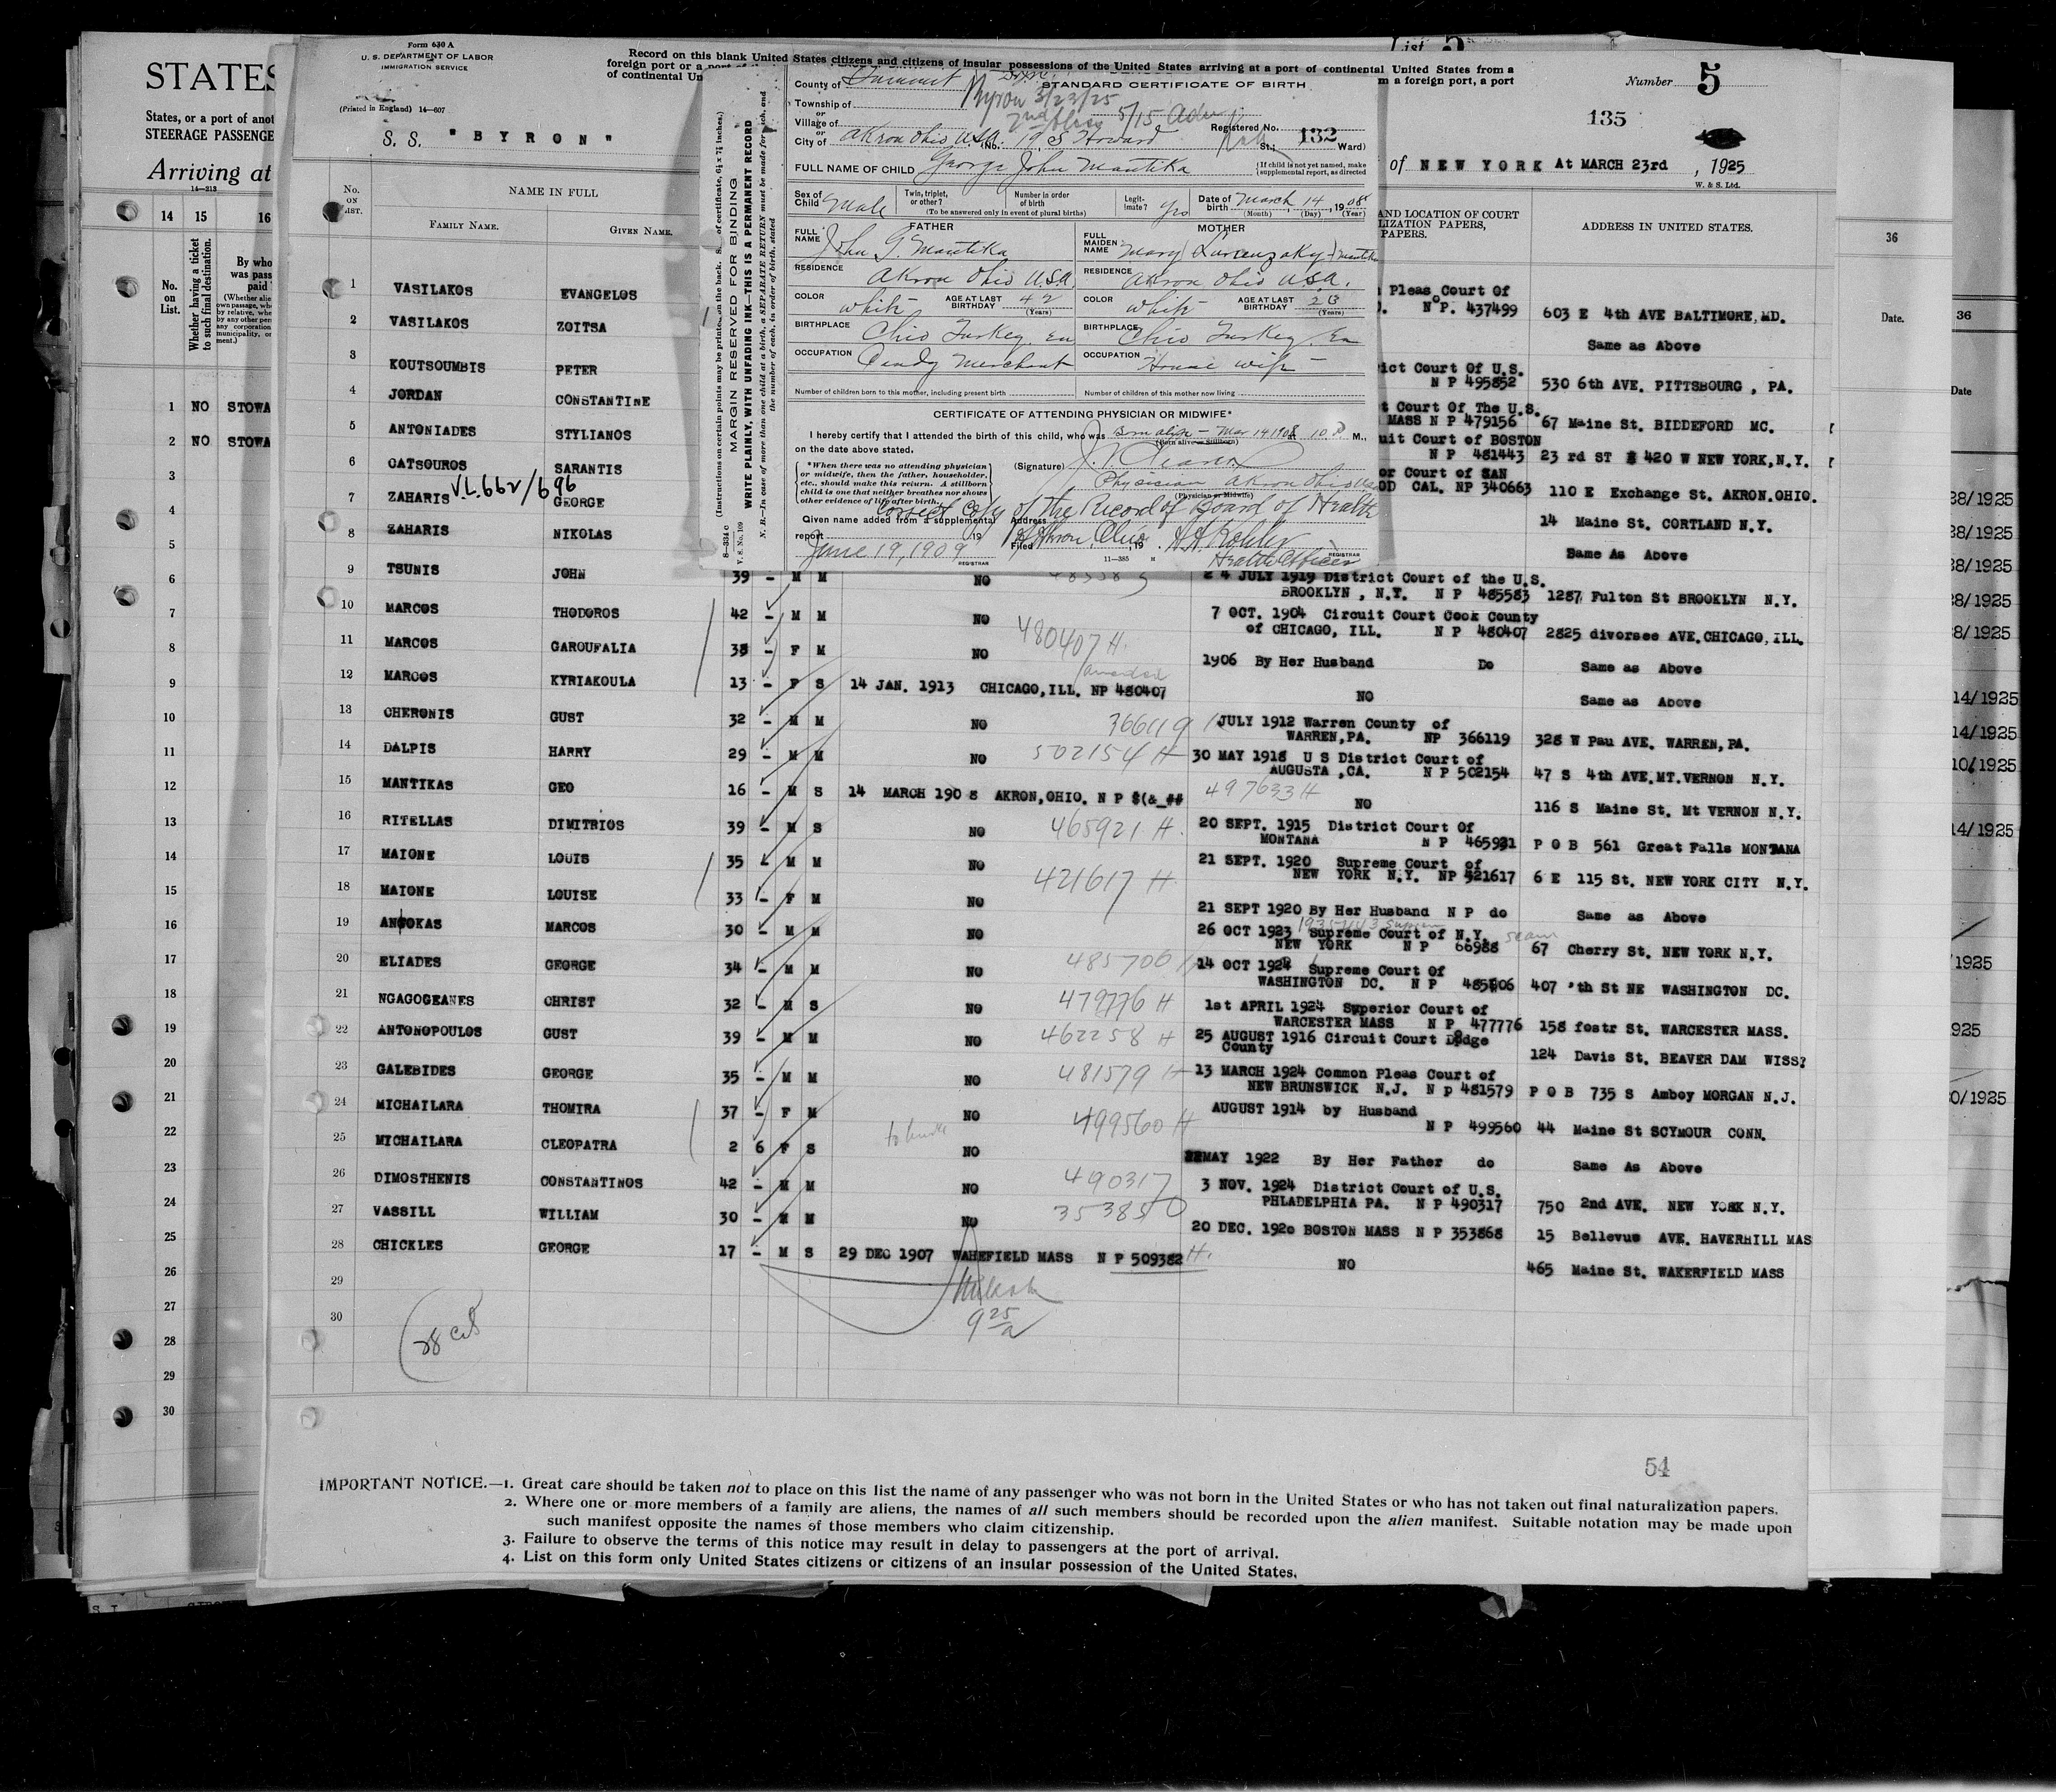 Form 630 A
U. S. DEPARTMENT OF LABOR
IMMIGRATION SERVICE
(Printed in England) 14—607
Record on this blank United States citizens and citizens of insular possessions of the United States arriving at a port of continental United States from a
foreign port or a port of
of continental Un
m a foreign port, a port
List 5
Number 5
135
S. S. "BYRON"
of NEW YORK At MARCH 23rd, 1925
W. & S. Ltd.
STATES
States, or a port of anot
STEERAGE PASSENGE
Arriving at
14—213
14 15 16
No. on List.
Whether having a ticket to such final destination.
By who
was pass
paid
1 NO STOWA
2 NO STOWA
3
4
5
6
7
8
9
10
11
12
13
14
15
16
17
18
19
20
21
22
23
24
25
26
27
28
29
30
County of Summit
STANDARD CERTIFICATE OF BIRTH
Byron 3/23/25
Township of
or
Village of
5/15
or
City of Akron Ohio U.S.A. No. 19 S Howard St.; Ward)
Registered No. 132
FULL NAME OF CHILD George John Mantika
{If child is not yet named, make
supplemental report, as directed
Sex of Child Male
Twin, triplet, or other?
Number in order of birth
(To be answered only in event of plural births)
Legitimate? Yes
Date of birth March, 14, 1908
(Month) (Day) (Year)
FATHER
MOTHER
FULL NAME John G. Mantika
FULL MAIDEN NAME Mary
RESIDENCE Akron Ohio U.S.A.
RESIDENCE Akron Ohio U.S.A.
COLOR White AGE AT LAST BIRTHDAY 42 (Years)
COLOR White AGE AT LAST BIRTHDAY 23 (Years)
BIRTHPLACE Chio Turkey. Eu
BIRTHPLACE Chio Turkey. Eu
OCCUPATION Candy Merchant
OCCUPATION House wife
Number of children born to this mother, including present birth
Number of children of this mother now living
CERTIFICATE OF ATTENDING PHYSICIAN OR MIDWIFE*
I hereby certify that I attended the birth of this child, who was Born alive - Mar 14 1908 10 P M.,
(Born alive or Stillborn)
on the date above stated.
*When there was no attending physician
or midwife, then the father, householder,
etc., should make this return. A stillborn
child is one that neither breathes nor shows
other evidence of life after birth.
(Signature)
Physician Akron Ohio
(Physician or Midwife)
Correct Copy of the Record of Board of Health
Given name added from a supplemental
Address
Akron, Ohio
report June 19, 1909
19
Filed , 19
REGISTRAR
11—385
H. H. Kohler
Health Officer
REGISTRAR
8—334 c
V. S. No. 109
(Instructions on certain points may be printed on the back. S of certificate, 6½ x 7½ inches.)
MARGIN RESERVED FOR BINDING
WRITE PLAINLY, WITH UNFADING INK—THIS IS A PERMANENT RECORD
N. B.—In case of more than one child at a birth, a SEPARATE RETURN must be made for each, and
the number of each, in order of birth, stated
No. ON LIST.
NAME IN FULL
FAMILY NAME.
GIVEN NAME.
AND LOCATION OF COURT
LIZATION PAPERS,
PAPERS.
ADDRESS IN UNITED STATES.
1 VASILAKOS EVANGELOS Pleas Court Of N P. 437499 603 E 4th AVE BALTIMORE, MD.
2 VASILAKOS ZOITSA Same as Above
3 KOUTSOUMBIS PETER ict Court Of U.S. N P 495852 530 6th AVE. PITTSBOURG , PA.
4 JORDAN CONSTANTINE t Court Of The U.S. MASS N P 479156 67 Maine St. BIDDEFORD MC.
5 ANTONIADES STYLIANOS uit Court of BOSTON N P 481443 23 rd ST 420 W NEW YORK, N.Y.
6 CATSOUROS SARANTIS or Court of SAN OD CAL. NP 340663 110 E Exchange St. AKRON.OHIO.
V.L.662/696
7 ZAHARIS GEORGE 14 Maine St. CORTLAND N.Y.
8 ZAHARIS NIKOLAS Same As Above
9 TSUNIS JOHN 39 - M M NO 485583 2 4 JULY 1919 District Court of the U.S.
BROOKLYN , N.Y. N P 485583 1287 Fulton St BROOKLYN N.Y.
10 MARCOS THODOROS 42 - M M NO 480407 H. 7 OCT. 1904 Circuit Court Cook County
of CHICAGO, ILL. N P 480407 2825 diversee AVE.CHICAGO, ILL.
11 MARCOS GAROUFALIA 35 - F M NO 1906 By Her Husband Do Same as Above
12 MARCOS KYRIAKOULA 13 - F S 14 JAN. 1913 CHICAGO, ILL. NP 480407 NO Same as Above
13 CHERONIS GUST 32 - M M NO 366119 JULY 1912 Warren County of
WARREN, PA. NP 366119 328 W Pau AVE. WARREN, PA.
14 DALPIS HARRY 29 - M M NO 502154 H 30 MAY 1918 U S District Court of
AUGUSTA ,CA. N P 502154 47 S 4th AVE.MT.VERNON N.Y.
15 MANTIKAS GEO 16 - M S 14 MARCH 1908 AKRON, OHIO. N P $(&_## 497633 H NO 116 S Maine St. Mt VERNON N.Y.
16 RITELLAS DIMITRIOS 39 - M S NO 465921 H. 20 SEPT. 1915 District Court Of
MONTANA N P 465921 P O B 561 Great Falls MONTANA
17 MAIONE LOUIS 35 - M M NO 21 SEPT. 1920 Supreme Court of
NEW YORK N.Y. NP 421617 6 E 115 St. NEW YORK CITY N.Y.
421617 H.
18 MAIONE LOUISE 33 - F M NO 21 SEPT 1920 By Her Husband N P do Same as Above
19 ANGOKAS MARCOS 30 - M M NO 26 OCT 1923 Supreme Court of N.Y.
NEW YORK N P 66988 67 Cherry St. NEW YORK N.Y.
20 ELIADES GEORGE 34 - M M NO 485706 14 OCT 1924 Supreme Court of
WASHINGTON DC. N P 485706 407 "th St NE WASHINGTON DC.
21 NGAGOGEANES CHRIST 32 - M S NO 479776 H 1st APRIL 1924 Superior Court of
WARCESTER MASS N P 477776 158 fostr St. WARCESTER MASS.
22 ANTONOPOULOS GUST 39 - M M NO 462258 H 25 AUGUST 1916 Circuit Court Dodge
County 124 Davis St. BEAVER DAM WISS?
23 GALEBIDES GEORGE 35 - M M NO 481579 H 13 MARCH 1924 Common Pleas Court of
NEW BRUNSWICK N.J. N p 481579 P O B 735 S Amboy MORGAN N.J.
24 MICHAILARA THOMIRA 37 - F M NO 499560 H AUGUST 1914 by Husband
N P 499560 44 Maine St SCYMOUR CONN.
25 MICHAILARA CLEOPATRA 2 6 F S NO MAY 1922 By Her Father do Same As Above
26 DIMOSTHENIS CONSTANTINOS 42 - M M NO 490317 3 NOV. 1924 District Court of U.S.
PHILADELPHIA PA. N P 490317 750 2nd AVE. NEW YORK N.Y.
27 VASSILL WILLIAM 30 - M M NO 353850 20 DEC. 1920 BOSTON MASS N P 353868 15 Bellevue AVE. HAVERHILL MAS
28 CHICKLES GEORGE 17 - M S 29 DEC 1907 WAHEFIELD MASS N P 509382 H. NO 465 Maine St. WAKERFIELD MASS
29
30
925
54
IMPORTANT NOTICE.—1. Great care should be taken not to place on this list the name of any passenger who was not born in the United States or who has not taken out final naturalization papers.
2. Where one or more members of a family are aliens, the names of all such members should be recorded upon the alien manifest. Suitable notation may be made upon
such manifest opposite the names of those members who claim citizenship.
3. Failure to observe the terms of this notice may result in delay to passengers at the port of arrival.
4. List on this form only United States citizens or citizens of an insular possession of the United States.
36
Date.
36
Date